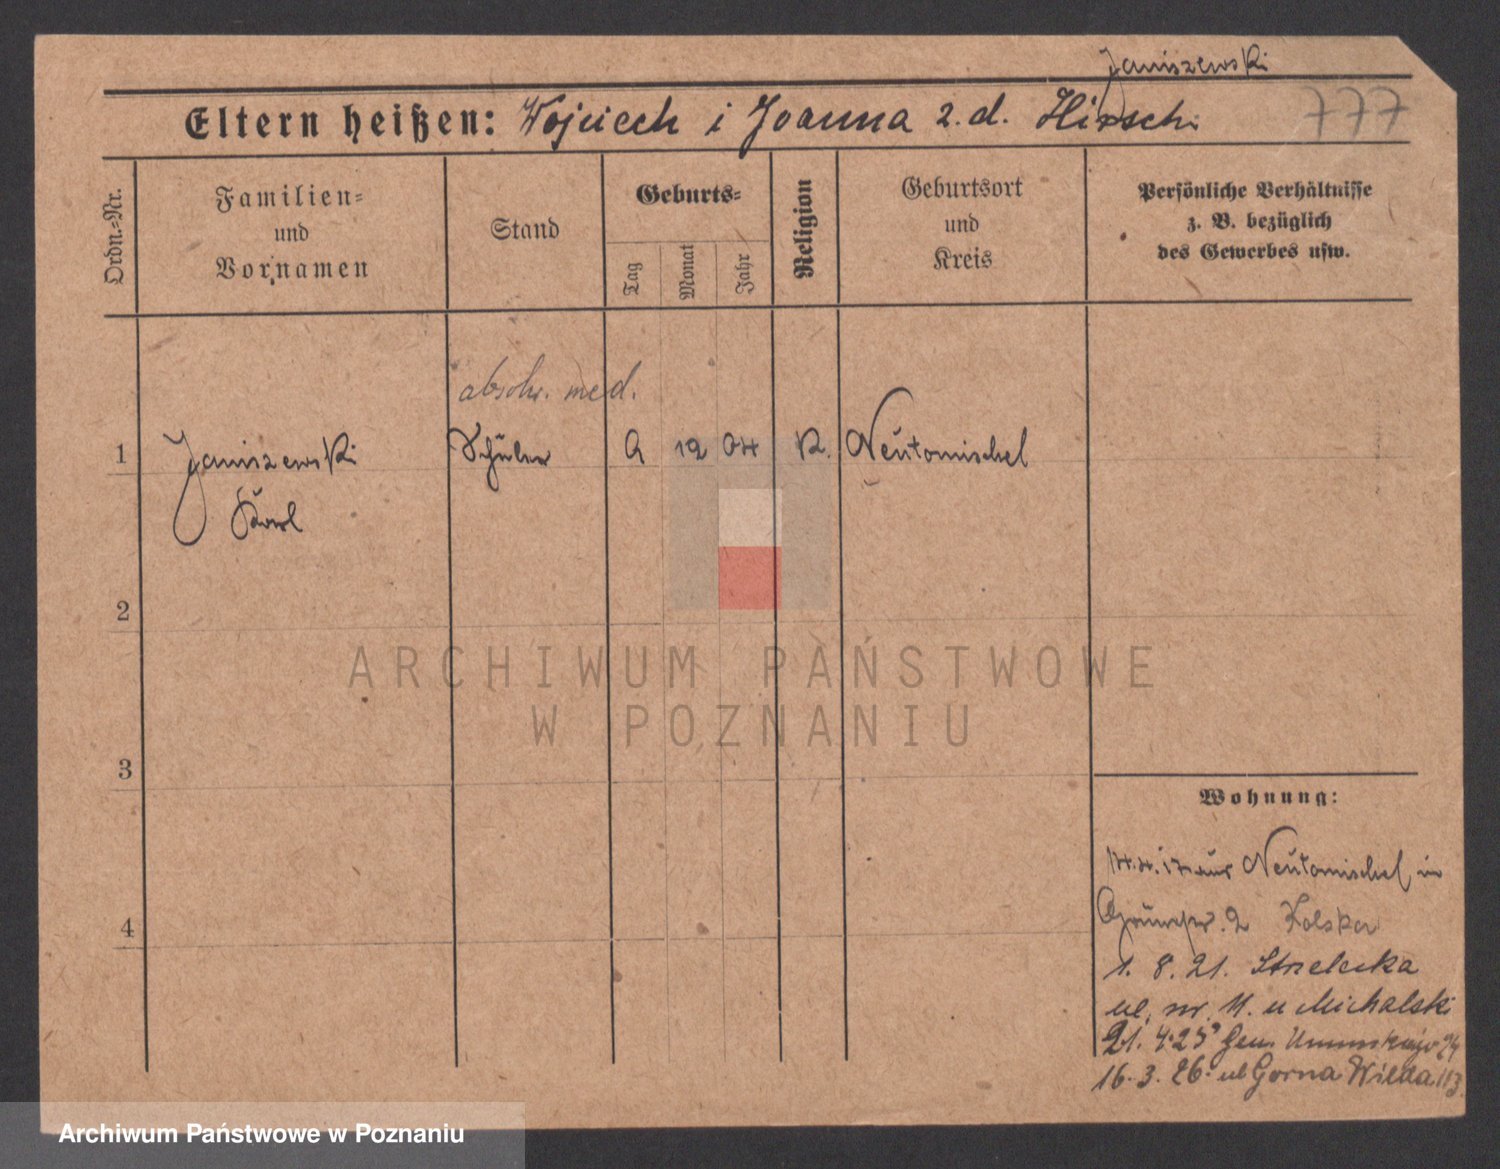 Janiszewski
Eltern heißen: Wojciech i Joanna z.d. Hirsch
777
Ordn.-Nr.
Familien- und Vornamen
Stand
Geburts-
Tag
Monat
Jahr
Religion
Geburtsort und Kreis
Persönliche Verhältnisse
z. B. bezüglich
des Gewerbes usw.
absolw. med.
1 Janiszewski Schüler 12 04 K. Neutomischel
Karl
2
3
4
ARCHIWUM PAŃSTWOWE
W POZNANIU
Wohnung:
17 aus Neutomischel in
2 Kolska
1. 8. 21. Strzelecka
ul. nr. 11. u Michalski
21. 4. 25 Gen. Umińskiego 24
16. 3. 26. ul Gorna Wilda 113
Archiwum Państwowe w Poznaniu